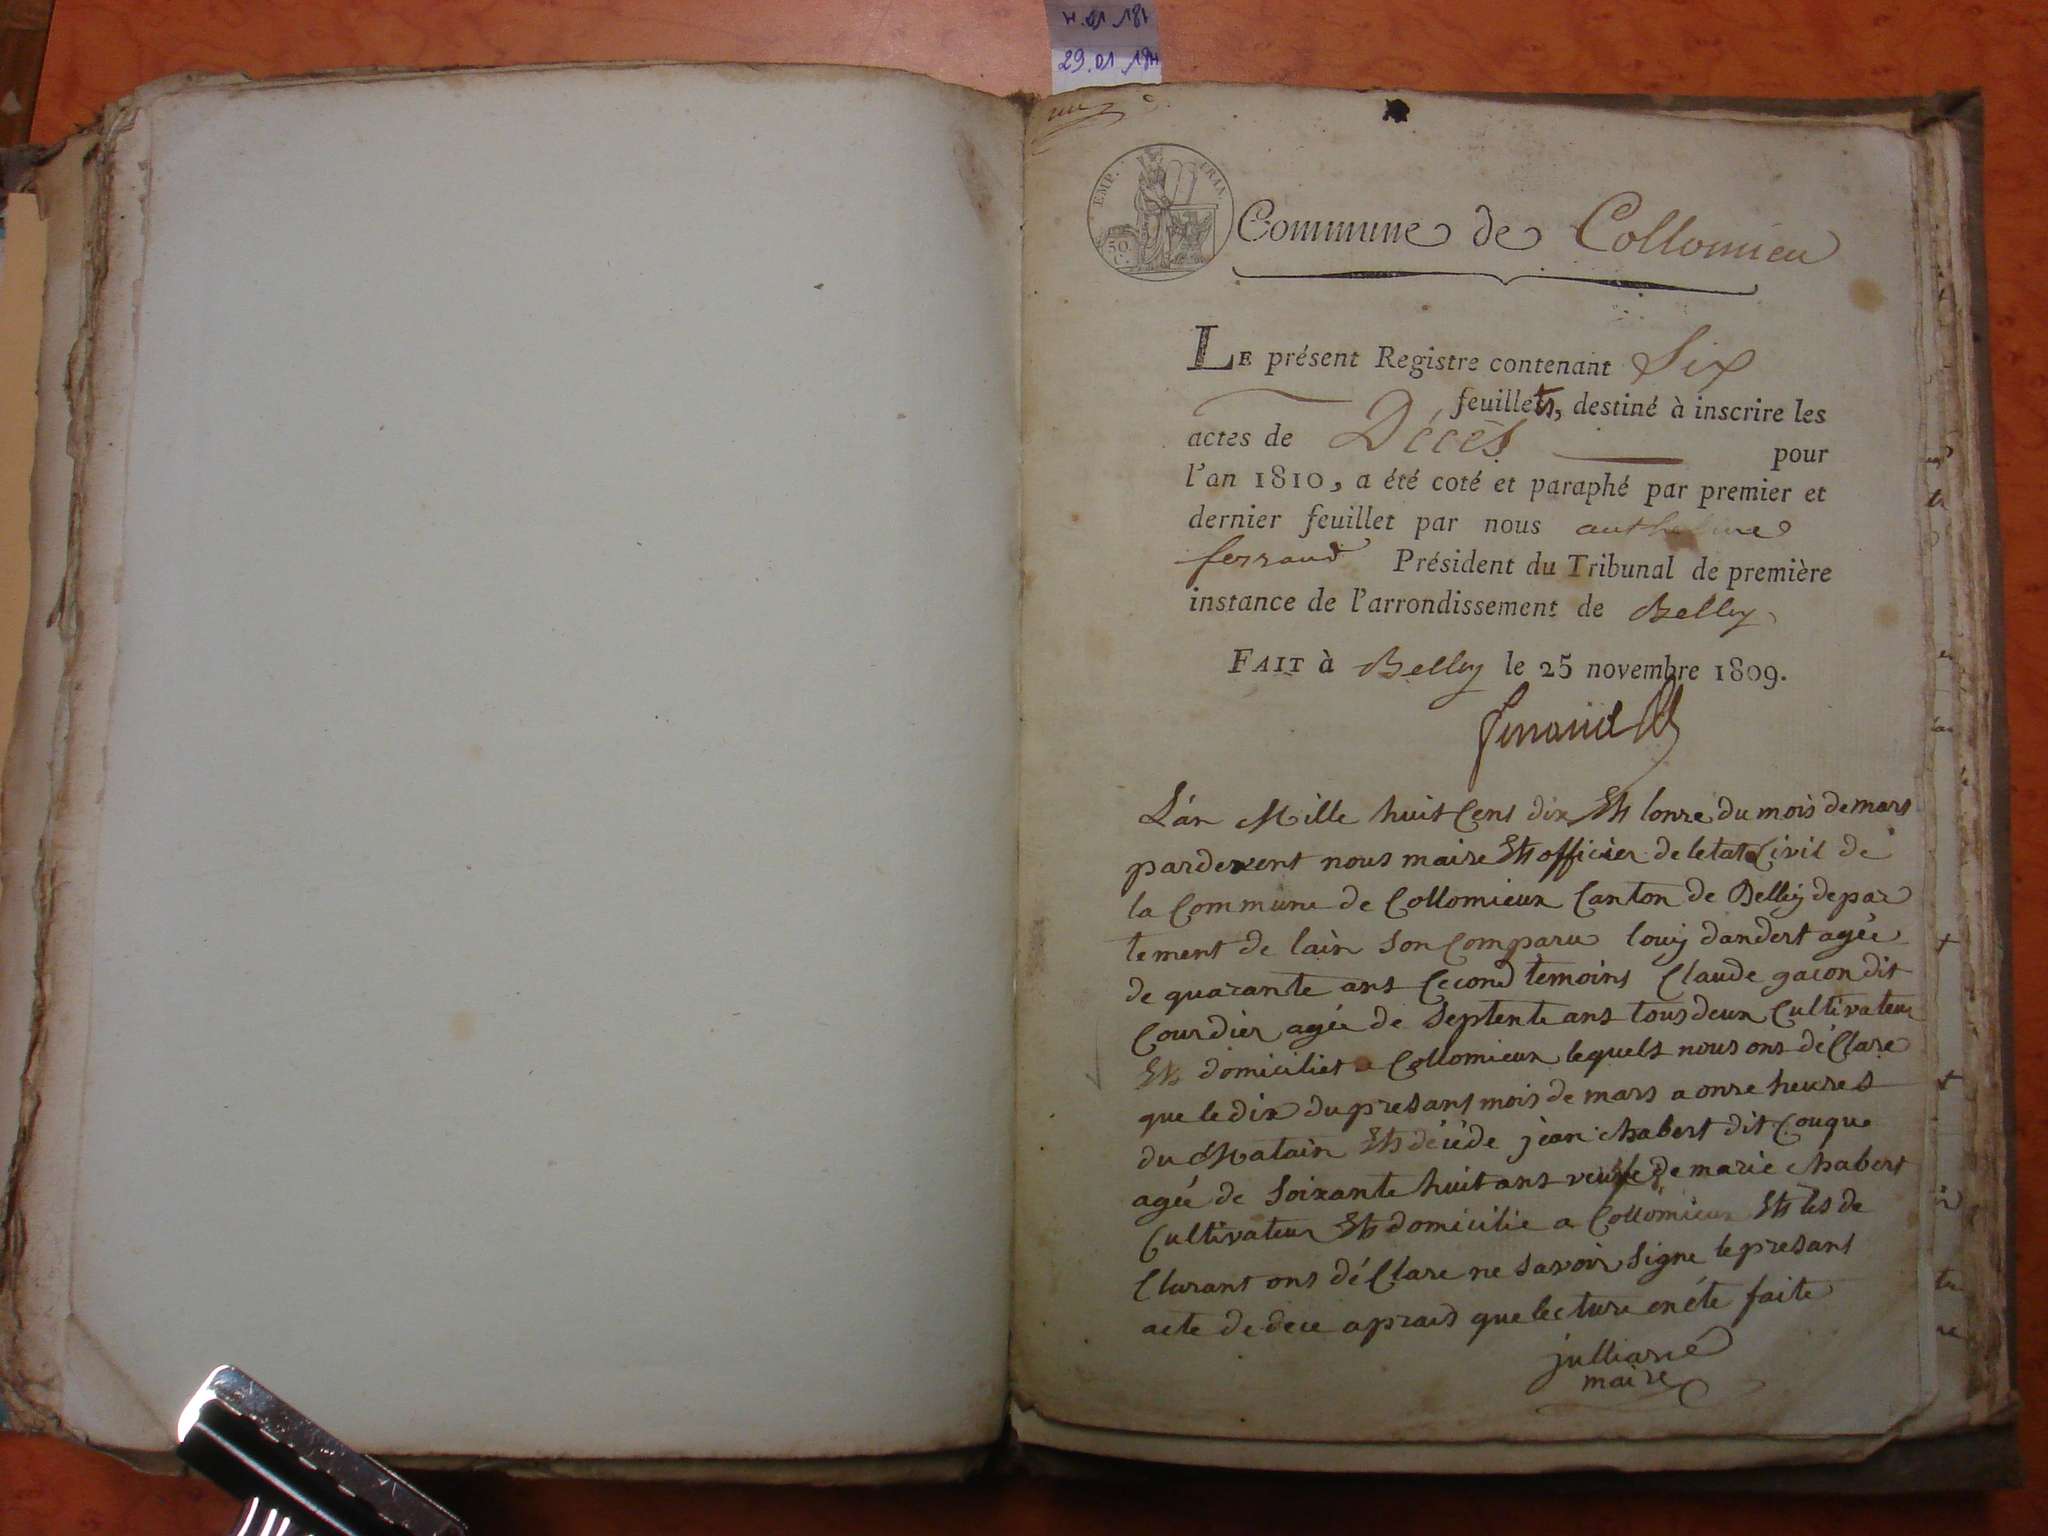 29.01.181
EMP. FRAN.
50 C.
Commune de Collomieu
LE présent Registre contenant Six
feuillets, destiné à inscrire les
actes de Décès pour
l'an 1810, a été coté et paraphé par premier et
dernier feuillet par nous anthelme
ferrand Président du Tribunal de première
instance de l'arrondissement de Belley
FAIT à Belley le 25 novembre 1809.
ferrand
L'an Mille huit Cens dix Et lonze du mois de mars
pardevent nous maire Et officier de letat Civil de
la Commune de Collomieux Canton de Belley depar
tement de lain son Comparu louij dandert agée
de quarante ans Cecond temoins Claude gacon dit
Courdier agée de Septente ans tous deux Cultivateur
Et domiciliet a Collomieux lequels nous ons déClare
que le dix du presant mois de mars a onze heures
du Matain Et décéde jean chabert dit Couque
agée de Soixante huit ans veufe de marie chabert
Cultivateur Et domicilie a Collomieux Et les de
Clarant ons déClare ne savoir signe le presant
acte de dece aprais que lecture en éte faite
julliane
maire